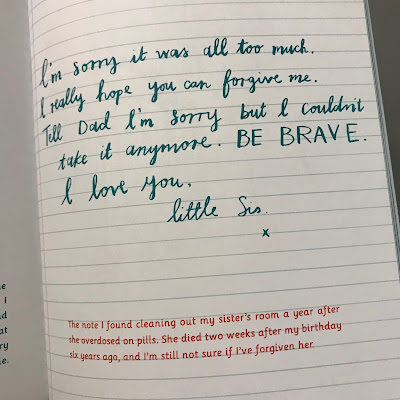 I'm sorry it was all too much.
I really hope you can forgive me.
Tell Dad I'm sorry but I couldn't
take it anymore. BE BRAVE.
I love you.
little Sis.
x
The note I found cleaning out my sister's room a year after
she overdosed on pills. She died two weeks after my birthday
six years ago, and I'm still not sure if I've forgiven her